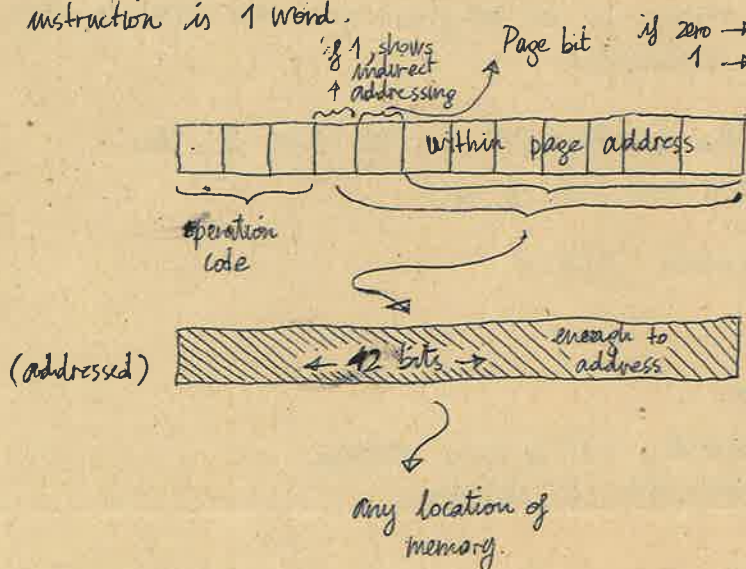 instruction is 1 word.
if 1, shows
indirect
addressing
Page bit if zero →
1 →
within page address
operation
code
(addressed) ← 12 bits → enough to
address
any location of
memory.